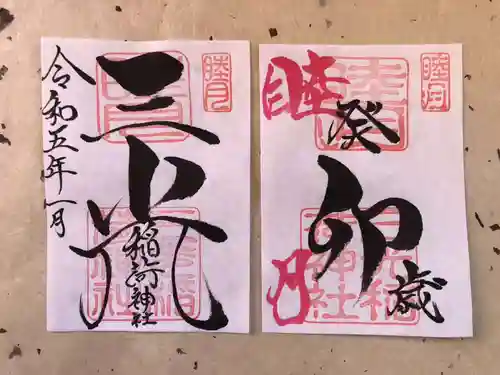 令和五年一月
三光
稲荷神社
睦月
睦月
癸
卯
歳
睦月